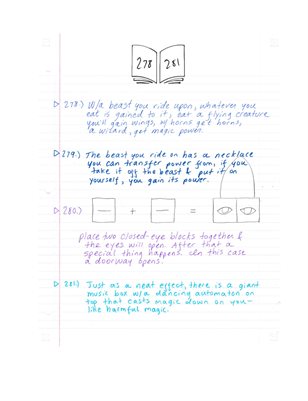 278 281
278.) W/a beast you ride upon, whatever you
eat is gained to it, eat a flying creature
you'll gain wings, w/horns get horns,
a wizard, get magic power.
279.) The beast you ride on has a necklace
you can transfer power from, if you
take it off the beast & put it on
yourself, you gain its power.
280.) + =
Place two closed-eye blocks together &
the eyes will open. After that a
special thing happens. In this case
a doorway opens.
281.) Just as a neat effect, there is a giant
music box w/a dancing automaton on
top that casts magic down on you—
like harmful magic.